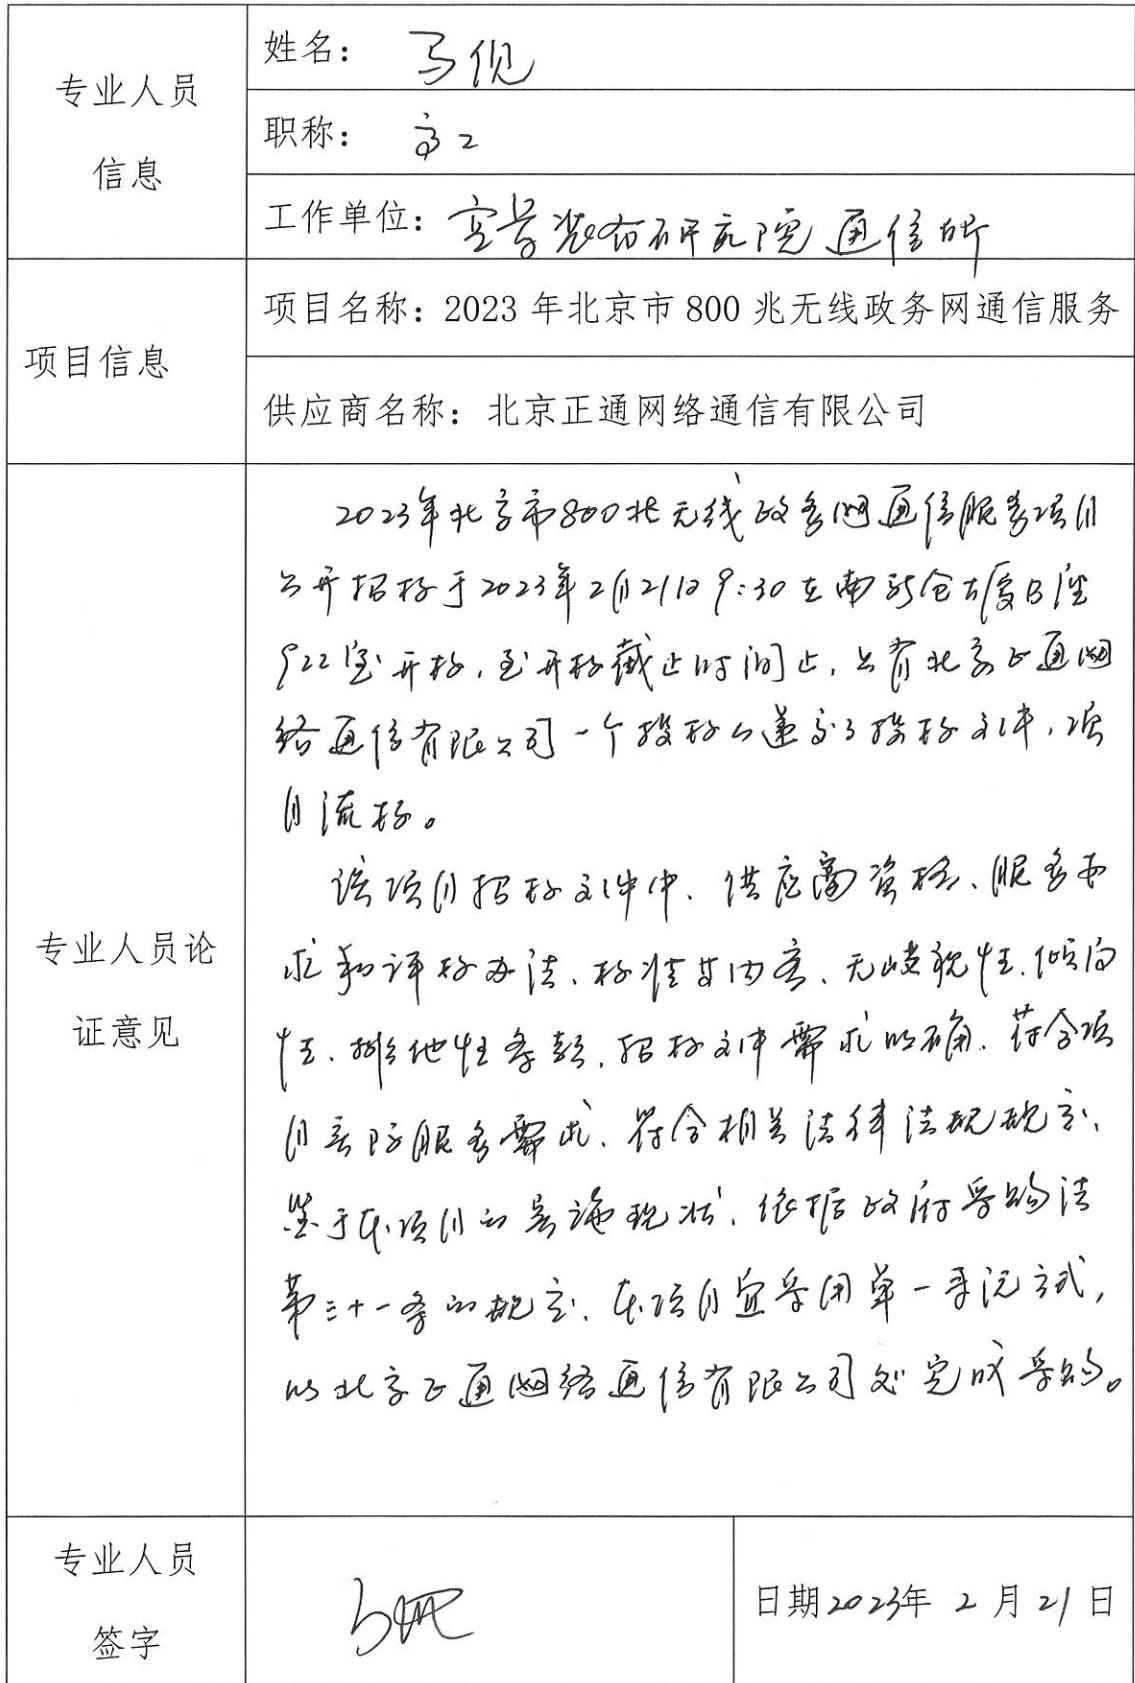 专业人员
信息
姓名：马伣
职称：高工
工作单位：空军装备研究院通信所
项目信息
项目名称：2023 年北京市 800 兆无线政务网通信服务
供应商名称：北京正通网络通信有限公司
专业人员论
证意见
2023年北京市800兆无线政务网通信服务项目
公开招标于2023年2月21日9:30在南新仓大厦B座
922室开标,至开标截止时间止,只有北京正通网
络通信有限公司一个投标人递交了投标文件,项
目流标。
该项目招标文件中、供应商资格、服务要
求和评标办法、标准等内容、无歧视性、倾向
性、排他性条款,招标文件需求明确、符合项
目实际服务需求、符合相关法律法规规定、
鉴于本项目的实施现状、依据政府采购法
第三十一条的规定、本项目宜采用单一来源方式,
从北京正通网络通信有限公司处完成采购。
专业人员
签字
日期2023年 2 月 21 日